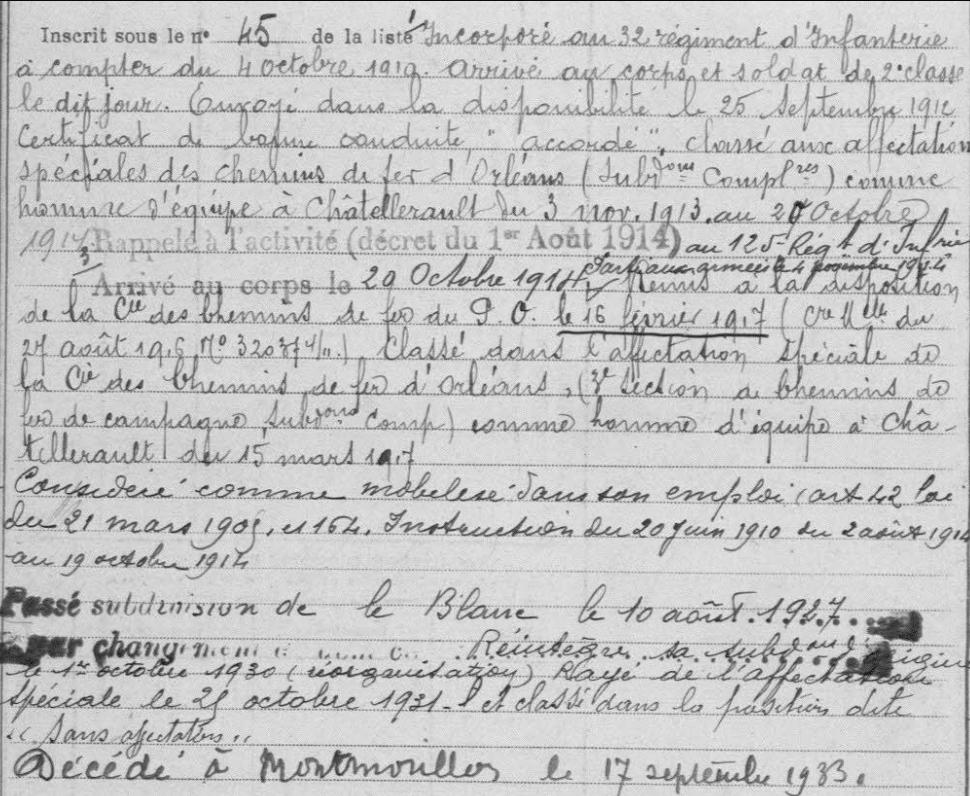 Inscrit sous le n° 45 de la liste Incorporé au 32 régiment d'Infanterie
à compter du 4 octobre 1910. arrivé au corps et soldat de 2e classe
le dit jour. Envoyé dans la disponibilité le 25 Septembre 1912
Certificat de bonne conduite "accordé", classé aux affectation
spéciales des chemins de fer d'Orléans (Subdons Complres) comme
homme d'équipe à Châtellerault du 3 nov. 1913. au 20 Octobre
1914 Rappelé à l'activité (décret du 1er Août 1914) au 125e Régt d'Infrie
Arrivé au corps le 20 Octobre 1914. Parti aux armées le 4 novembre 1914 Remis à la disposition
de la Cie des chemins de fer du P. O. le 16 février 1917 (Cre Mlle du
27 août 1916 No 32037 4/11.) Classé dans l'affectation spéciale de
la Cie des Chemins de fer d'Orléans, (3e Section de chemins de
fer de campagne, Subdons Comp) comme homme d'équipe à Châ-
tellerault du 15 mars 1917
Considéré comme mobilisé dans son emploi (art 42 loi
du 21 mars 1905, et 164. Instruction du 20 Juin 1910 du 2 août 1914
au 19 octobre 1914
Passé subdivision de le Blanc le 10 août 1927
par changement Réintègre sa subdon d'origine
le 1er octobre 1930 (réorganisation) Rayé de l'affectation
spéciale le 25 octobre 1931 et classé dans la position dite
"Sans affectation"
Décédé à Montmorillon le 17 septembre 1933.